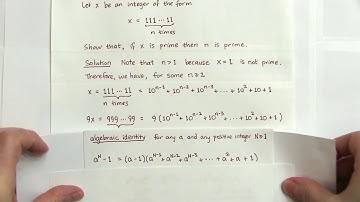 Let x be an integer of the form
x = 111 ··· 11
n times
Show that, if x is prime then n is prime.
Solution Note that n > 1 because x = 1 is not prime.
Therefore, we have, for some n ≥ 2
x = 111 ··· 11 = 10^{n-1} + 10^{n-2} + 10^{n-3} + ... + 10^2 + 10 + 1
n times
9x = 999 ··· 99 = 9 (10^{n-1} + 10^{n-2} + 10^{n-3} + ... + 10^2 + 10 + 1)
n times
algebraic identity for any a and any positive integer N ≥ 1
a^N - 1 = (a - 1)(a^{N-1} + a^{N-2} + a^{N-3} + ... + a^2 + a + 1)